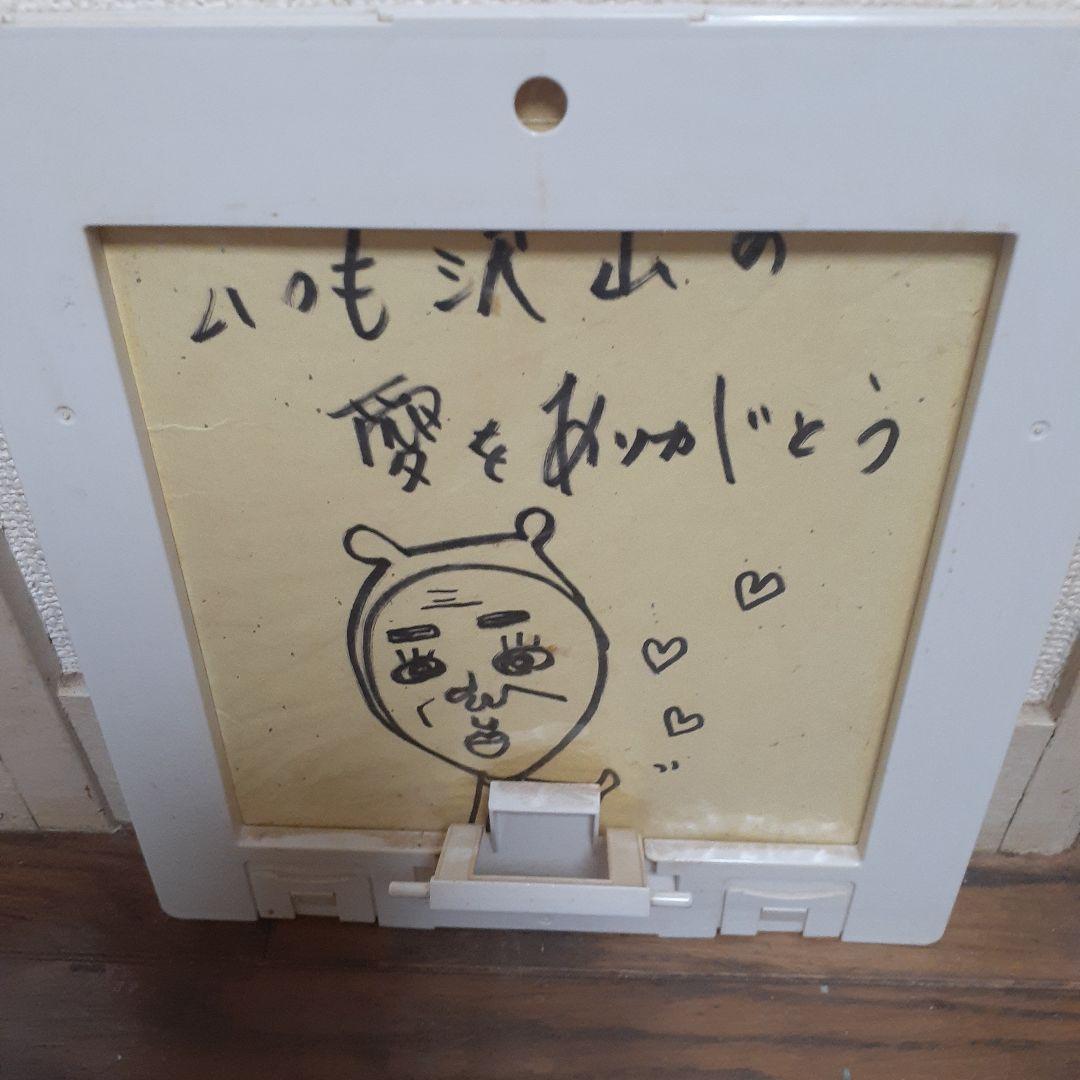 いつも沢山の
愛をありがとう